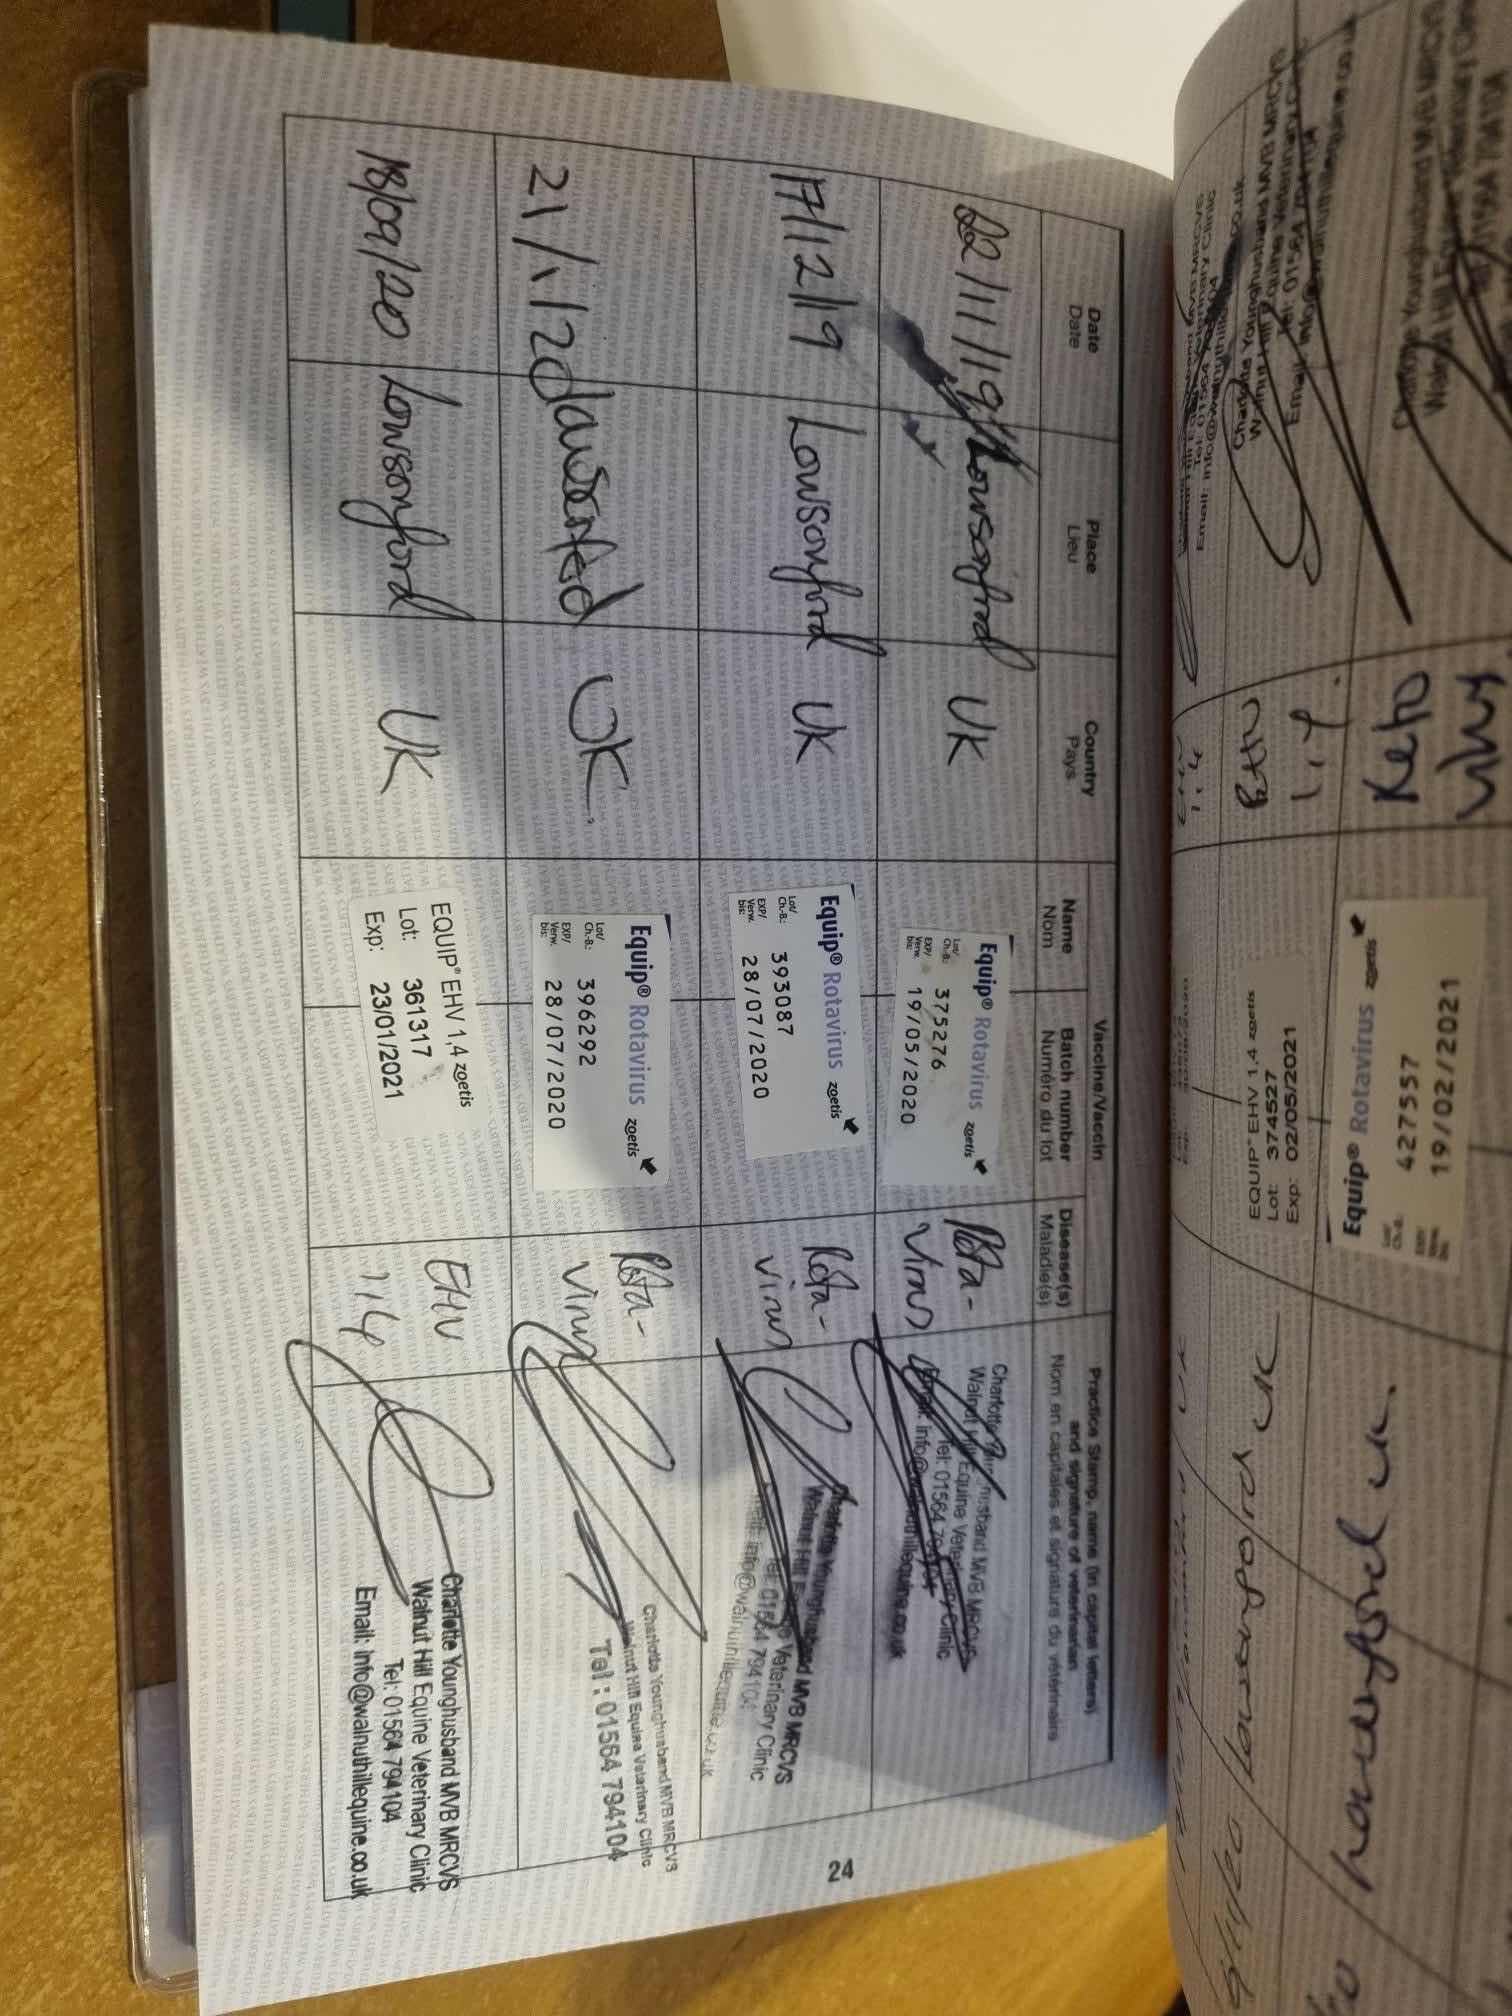 24
Date
Date
Place
Lieu
Country
Pays
Vaccine/Vaccin
Name
Nom
Batch number
Numéro du lot
Disease(s)
Maladie(s)
Practice Stamp, name (in capital letters)
and signature of veterinarian
Nom en capitales et signature du vétérinaire
22/11/19
Lowsonford
UK
Equip® Rotavirus zoetis
Lot/
Ch.-B.: 375276
EXP/
Verw.
bis: 19/05/2020
Rota-
virus
Charlotte Younghusband MVB MRCVS
Walnut Hill Equine Veterinary Clinic
Tel: 01564 794104
Email: info@walnuthillequine.co.uk
17/12/19
Lowsonford
UK
Equip® Rotavirus zoetis
Lot/
Ch.-B.: 393087
EXP/
Verw.
bis: 28/07/2020
Rota-
virus
Charlotte Younghusband MVB MRCVS
Walnut Hill Equine Veterinary Clinic
Tel: 01564 794104
Email: info@walnuthillequine.co.uk
21/1/20
UK
Equip® Rotavirus zoetis
Lot/
Ch.-B.: 396292
EXP/
Verw.
bis: 28/07/2020
Rota-
virus
Charlotte Younghusband MVB MRCVS
Walnut Hill Equine Veterinary Clinic
Tel: 01564 794104
18/09/20
Lowsonford
UK
EQUIP® EHV 1,4 zoetis
Lot: 361317
Exp: 23/01/2021
EHV
1,4
Charlotte Younghusband MVB MRCVS
Walnut Hill Equine Veterinary Clinic
Tel: 01564 794104
Email: info@walnuthillequine.co.uk
Lowsonford UK.
Equip® Rotavirus zoetis
427557
19/02/2021
Rota
virus
Charlotte Younghusband MVB MRCVS
01564 794104
Lowsonford UK
EQUIP® EHV 1,4 zoetis
Lot: 374527
Exp: 02/05/2021
EHV
1,4.
Charlotte Younghusband MVB MRCVS
Walnut Hill Equine Veterinary Clinic
Tel: 01564 794104
Email: info@walnuthillequine.co.uk